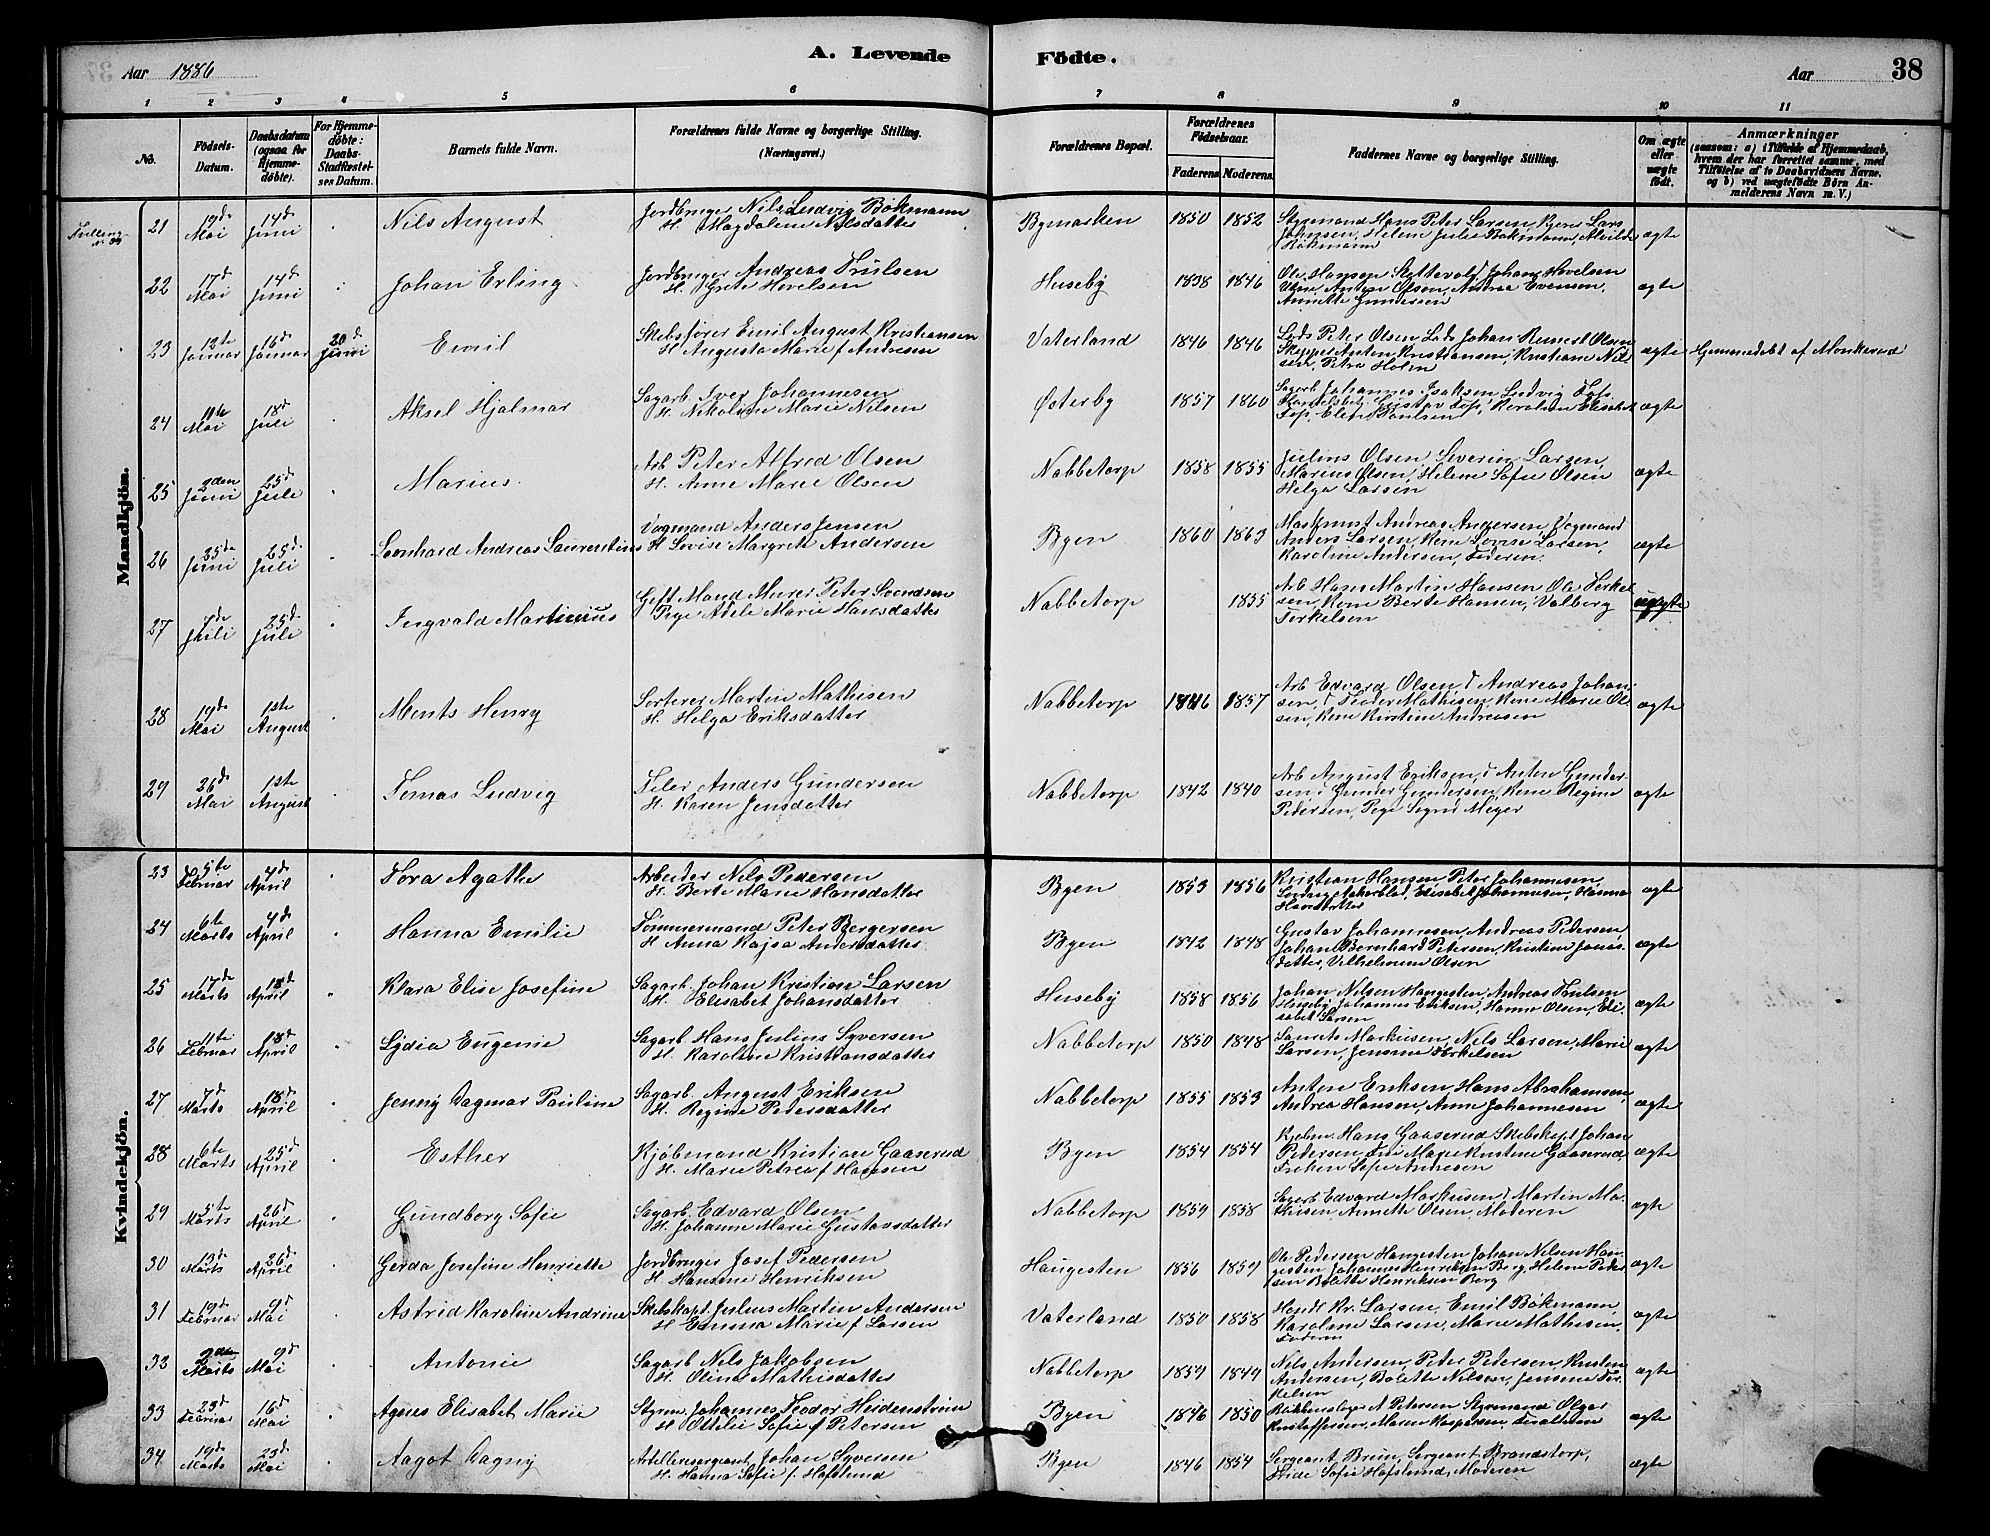 Aar 1886
A. Levende Födte.
Aar 38
1 2 3 4 5 6 7 8 9 10 11
No.
Födsels-Datum.
Daabsdatum (ogsaa for Hjemme-döbte).
For Hjemme-döbte: Daabs-Stadfæstel-ses Datum.
Barnets fulde Navn.
Forældrenes fulde Navne og borgerlige Stilling. (Næringsvei.)
Forældrenes Bopæl.
Forældrenes Födselsaar.
Faderens Moderens
Faddernes Navne og borgerlige Stilling.
Om ægte eller uægte födt.
Anmærkninger
(saasom: a) i Tilfælde af Hjemmedaab,
hvem der har forrettet samme, med
Tilföielse af to Daabsvidners Navne,
og b) ved uægtefödte Börn An-
melderens Navn m. V.)
Mandkjön.
21 19de Mai 14de Juni Nils August
Jordbruger Nils Ludvig Bökmann
H. Magdalene Nilsdatter
Bymarken 1850 1852
Styrmand Hans Peter Larsen, Lars
Johnsen, Helene Julie Bökmann, Alvilde
Bökmann
ægte
22 17de Mai 14de Juni Johan Erling
Jordbruger Andreas Trulsen
H. Grete Hovelsen
Huseby 1838 1846
Ole Hansen Johan Hovelsen
Anton Olsen, Andrea Evensen,
Annette Gundersen
ægte
23 12te Januar 16de Januar 20de Juni Emil
Skibsfører Emil August Kristiansen
H. Augusta Marie f. Andresen
Vaterland 1846 1846
Lods Peter Olsen Lods Johan Olsen
Skipper Anton Kristiansen, Kristiane Nil-
sen, Petra Holm
ægte Hjemmedøbt af Monkerud
24 Mai 18de Juli Aksel Hjalmar
Sagarb. Iver Johannesen
H. Nikoline Marie Nilsen
Østerby 1857 1860
Sagarb. Johannes Isaksen Ludvig
Elen Paulsen
ægte
25 2den Juni 25de Juli Marius
Arb. Peter Alfred Olsen
H. Anne Marie Olsen
Nabbetorp 1858 1855
Julius Olsen Severin Larsen,
Marius Olsen, Helene Sofie Olsen
Helga Larsen
ægte
26 25de Juni 25de Juli Leonhard Andreas Laurentius
Vogmand Anders Jensen
H. Lovise Margrete Andersen
Byen 1860 1863
Andreas Andersen Vogmand
Anders Larsen, Kone Lovise Larsen,
Karoline Andersen, Faderen.
ægte
27 7de Juli 25de Juli Ingvald Martinius
Gift Mand Murer Peter Svendsen
Pige Adele Marie Hansdatter
Nabbetorp 1855
Arb. Hans Martin Hansen Ole Terkel-
sen, Kone Berte Hansen, Valborg
Terkelsen
uægte
28 19de Mai 1ste August Ments Henry
Sorterer Martin Mathisen
H. Helga Eriksdatter
Nabbetorp 1846 1857
Arb. Edvard Olsen, Andreas Johan-
sen, Teodor Mathisen, Kone Marie Ol-
sen, Kone Kirstine Andreasen
ægte
29 26de Mai 1ste August Tomas Ludvig
Filer Anders Gundersen
H. Karen Jensdatter
Nabbetorp 1842 1840
Arb. August Eriksen, Anton Gunder-
sen, Gunder Gundersen, Kone Regine
Pedersen, Pige Sigrid Meyer
ægte
Kvindekjön.
23 5te Februar 4de April Tora Agathe
Arbeider Nils Pedersen
H. Berte Marie Hansdatter
Byen 1853 1856
Kristian Hansen, Peter Johannesen,
Ludvig Akerblad, Elisabet Johannesen, Hanna
Hansdatter
ægte
24 6te Marts 4de April Hanna Emilie
Tömmermand Peter Bergersen
H. Anna Kajsa Andersdatter
Byen 1842 1848
Gustav Johannesen, Andreas Pedersen
Johan Bernhard Petersen, Kristine Jonas-
datter, Vilhelmine Olsen
ægte
25 17de Marts 18de April Klara Elise Josefine
Sagarb. Johan Kristian Larsen
H. Elisabet Johansdatter
Huseby 1858 1856
Johan Nilsen Haugesten, Andreas Trulsen
Huseby, Johannes Eriksen, Hanna Olsen, Eli-
sabet Larsen
ægte
26 11te Februar 18de April Lydia Eugenie
Sagarb. Hans Julius Syversen
H. Karoline Kristiansdatter
Nabbetorp 1850 1848
Laurits Markusen, Nils Larsen, Marie
Larsen, Jensine Torkelsen
ægte
27 7de Marts 18de April Jenny Dagmar Pauline
Sagarb. August Eriksen
H. Regine Pedersdatter
Nabbetorp 1855 1853
Anton Eriksen, Hans Abrahamsen,
Andrea Hansen, Anne Johannesen
ægte
28 6te Marts 25de April Esther
Kjöbmand Kristian Gaaserud
H. Marie Petrea f. Hansen
Byen 1854 1854
Kjøbm. Hans Gaaserud Skibskapt. Johan
Petersen, Marie Kristine Gaaserud,
Frøken Sofie Andresen
ægte
29 5te Marts 26de April Gundborg Sofie
Sagarb. Edvard Olsen
H. Johanne Marie Gustavsdatter
Nabbetorp 1859 1858
Sagarb. Edvard Markusen, Martin Ma-
thisen, Annette Olsen, Moderen
ægte
30 13de Marts 26de April Gerda Josefine Henriette
Jordbruger Josef Pedersen
H. Hansine Henriksen
Haugesten 1856 1859
Ole Pedersen Haugesten, Johan Nilsen Hau-
gesten Johannes Henriksen Berg, Helene Peder-
sen Bolette Henriksen Berg
ægte
31 19de Februar 9de Mai Astrid Karoline Andrine
Skibskapt. Julius Martin Andersen
H. Emma Marie f. Larsen
Vaterland 1850 1858
Handl. Kr. Larsen, Emil Bökmann,
Karoline Larsen, Marie Mathisen,
Faderen
ægte
32 2den Marts 9de Mai Antonie
Sagarb. Nils Jakobsen
H. Oline Mathisdatter
Nabbetorp 1854 1849
Nils Andersen, Peter Petersen, Kristen
Andersen, Bolette Nilsen, Jensine Tor-
kelsen
ægte
33 23de Februar 16de Mai Agnes Elisabet Marie
Styrm. Johannes Teodor Heidenström
H. Ottilie Sofie f. Petersen
Byen 1846 1850
A. Petersen Styrmand Olger
Kristoffersen, Maren Kaspersen, Faderen
ægte
34 19de Marts 23de Mai Aagot Dagny
Artillerisergeant Johan Syversen
H. Hanna Sofie f. Hafslund
Byen 1846 1854
Sergeant Brun, Sergeant Brandstorp,
Sofie Hafslund, Moderen
ægte